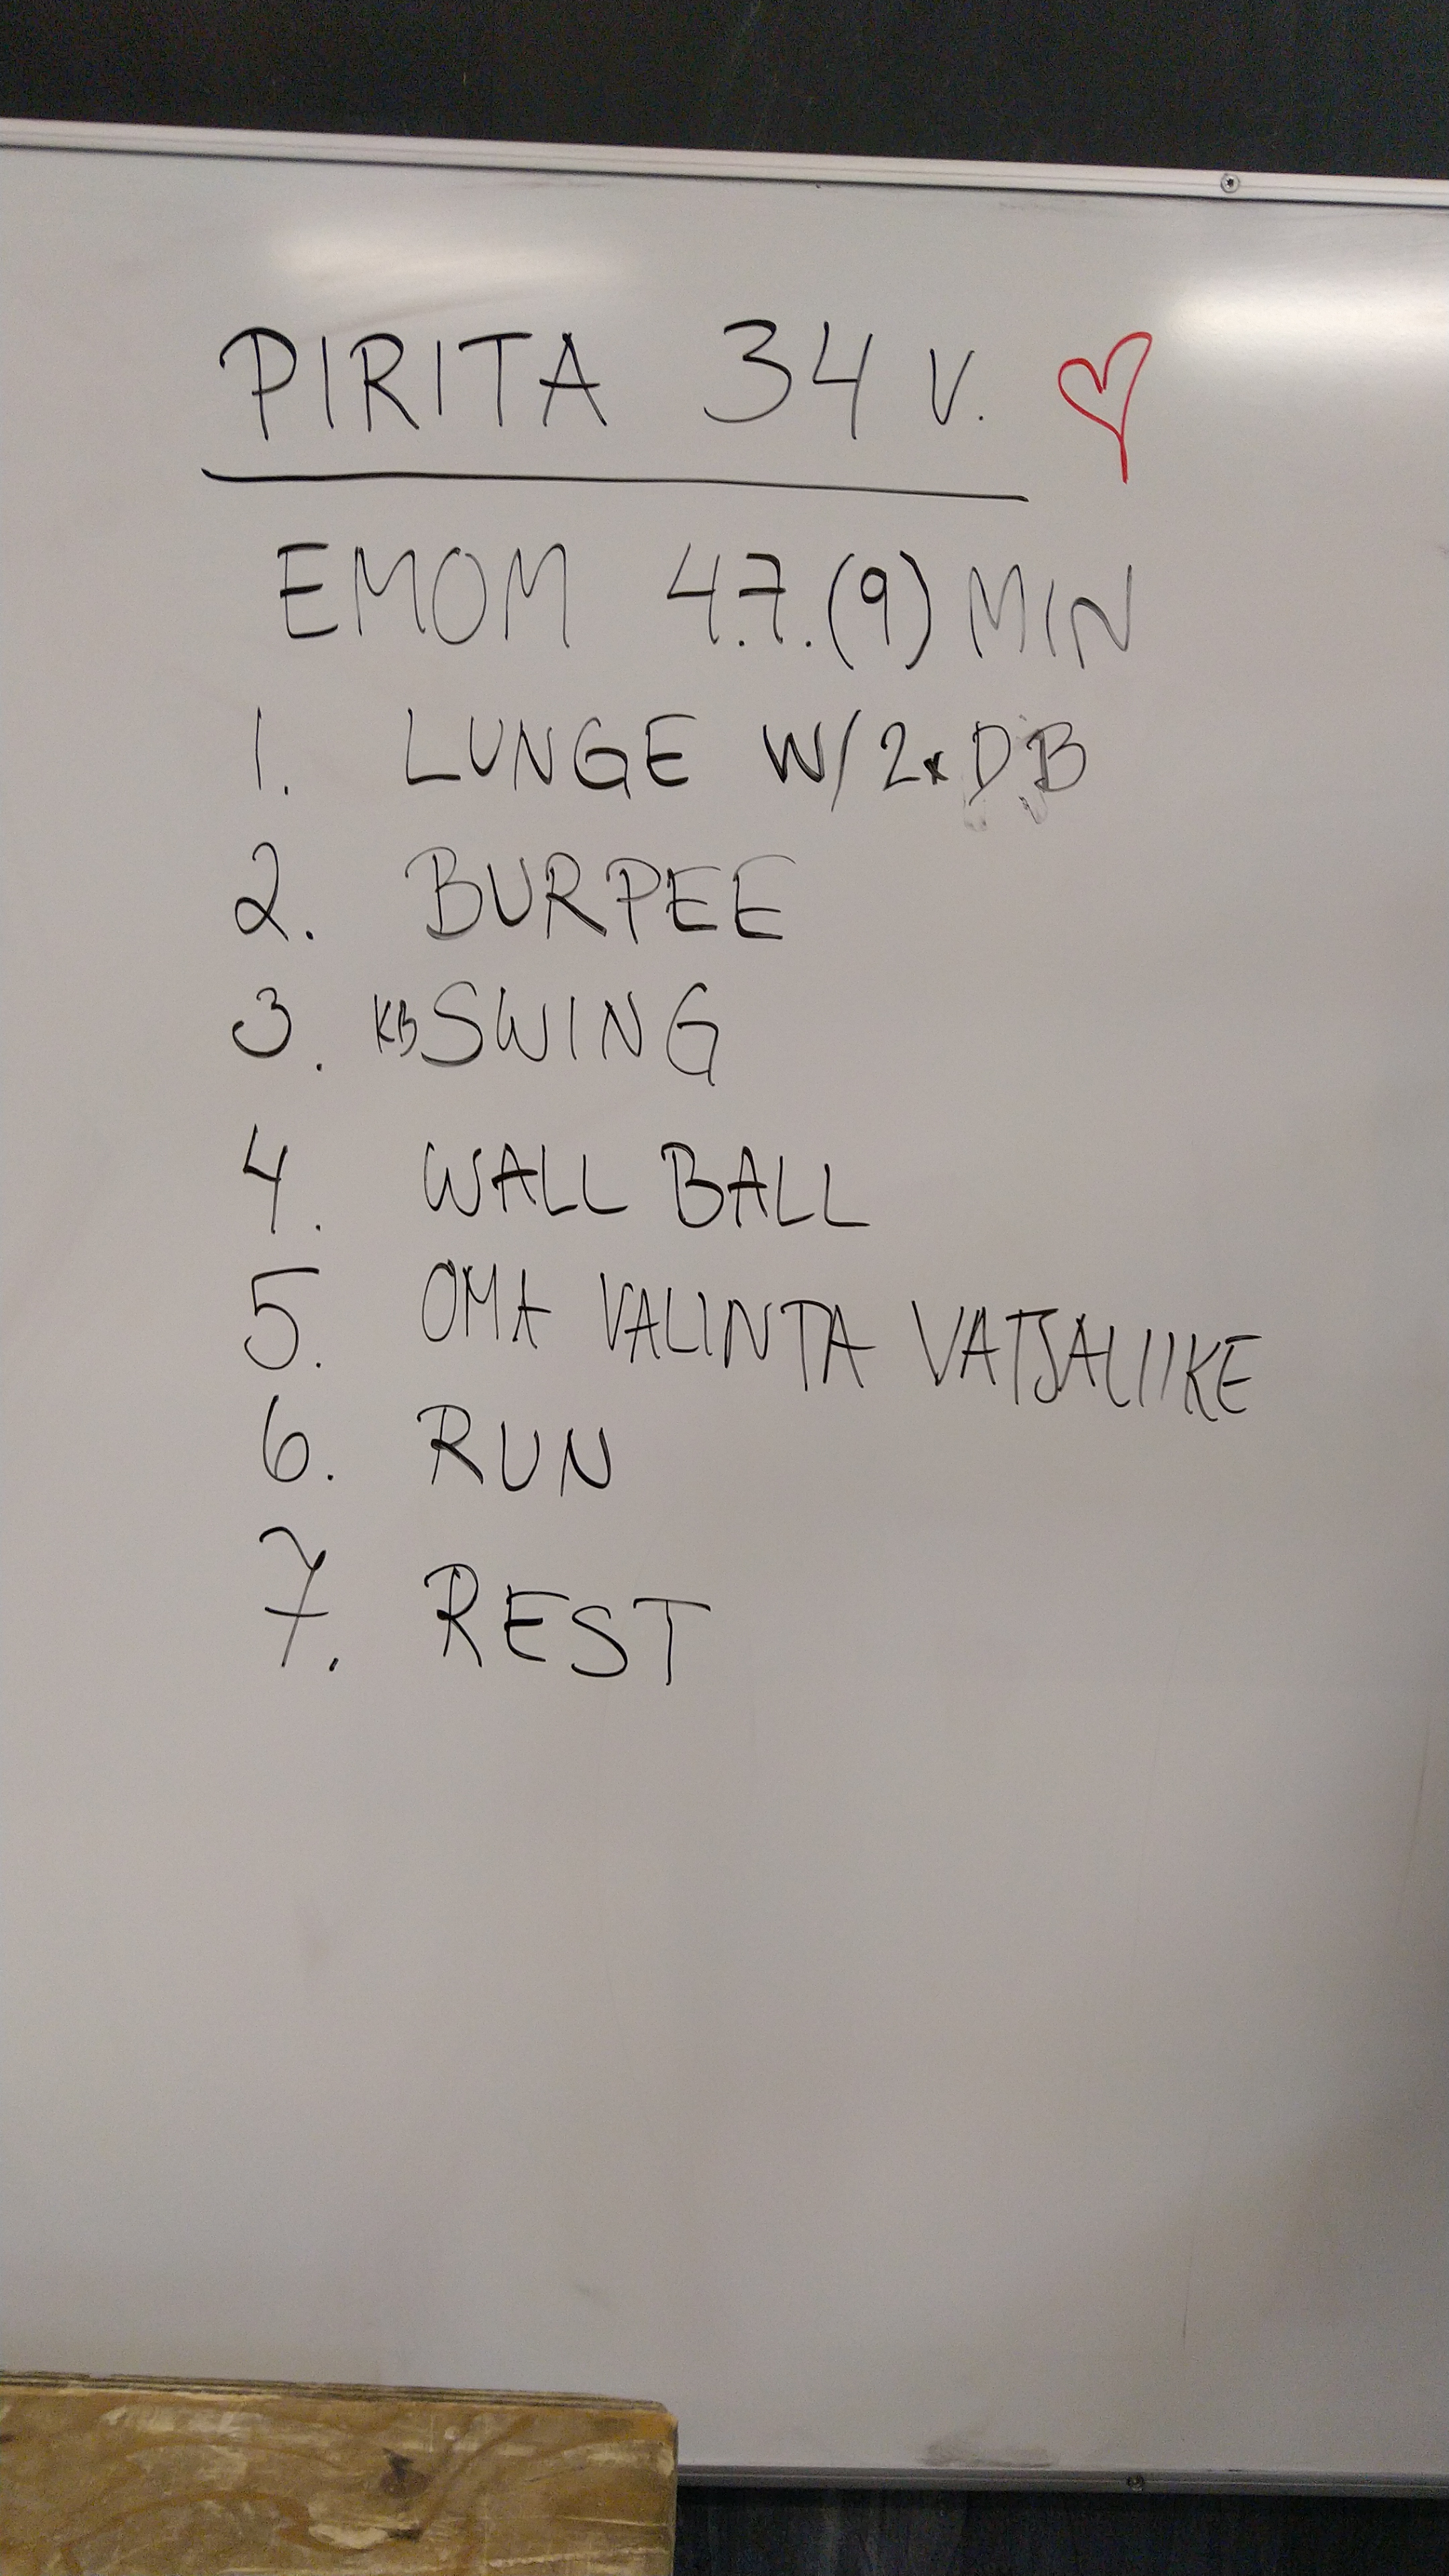 PIRITA 34 V.
EMOM 4.7.(9) MIN
1. LUNGE W/ 2x DB
2. BURPEE
3. KB SWING
4. WALL BALL
5. OMA VALINTA VATSALIIKE
6. RUN
7. REST